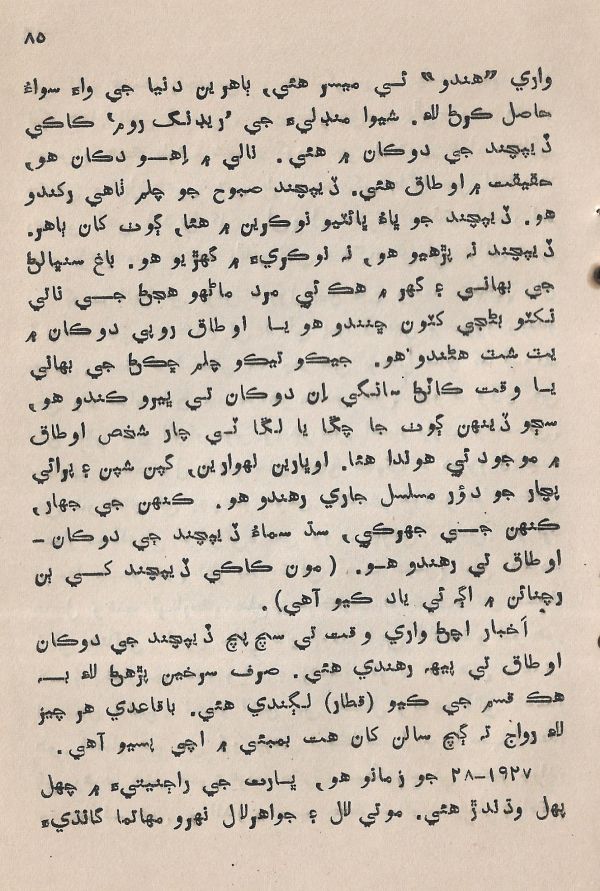 ۸۵
واري ”هندو“ تي ميسر هئي، ٻاهرين دنيا جي واءُ سواءُ
حاصل ڪرڻ لاءِ. شيوا منڊليءَ جي ’ريڊنگ روم‘ ڪاڪي
ڏيپچند جي دوڪان ۾ هئي. نالي ۾ اهو دڪان هو،
حقيقت ۾ اوطاق هئي. ڏيپچند صبوح جو چلم ٺاهي رکندو
هو. ڏيپچند جو ڀاءُ ڀائٽيو نوڪرين ۾ هئا، ڳوٺ کان ٻاهر.
ڏيپچند نہ پڙهيو هو، نہ نوڪريءَ ۾ گهڙيو هو. باغ سنڀالڻ
جي بهاني ۽ گهر ۾ هڪ ئي مرد ماڻهو هجڻ جي ناتي
نکٽو بڻجي کٽون ڇنندو هو يا اوطاق روپي دوڪان ۾
يٽ شٽ هڻندو هو. جيڪو ٿيڪو چلم ڇڪڻ جي بهاني
يا وقت ڪاٽڻ سانگي ان دوڪان تي ڀيرو ڪندو هو،
سڄو ڏينهن ڳوٺ جا چڱا يا لڱا ٽي چار شخص اوطاق
۾ موجود ئي هوندا هئا. اوپارين لهوارين، گپن شپن ۽ پرائي
پچار جو دؤر مسلسل جاري رهندو هو. ڪنهن جي جهار،
ڪنهن جي جهرڪي، سڌ سماءُ ڏيپچند جي دوڪان-
اوطاق تي رهندو هو. (مون ڪاڪي ڏيپچند کي ٻن
رچنائن ۾ اڳ ئي ياد ڪيو آهي).
اخبار اچڻ واري وقت تي سچ پچ ڏيپچند جي دوڪان
اوطاق تي پيهہ رهندي هئي. صرف سرخين پڙهڻ لاءِ بہ
هڪ قسم جي ڪيو (قطار) لڳندي هئي. باقاعدي هر چيز
لاءِ رواج تہ ڳچ سالن کان هت بمبئي ۾ اچي پسيو آهي.
۱۹۲۷-۲۸ جو زمانو هو، ڀارت جي راجنيتيءَ ۾ چهل
پهل وڌندڙ هئي. موتي لال ۽ جواهرلال نهرو مهاتما گانڌيءَ